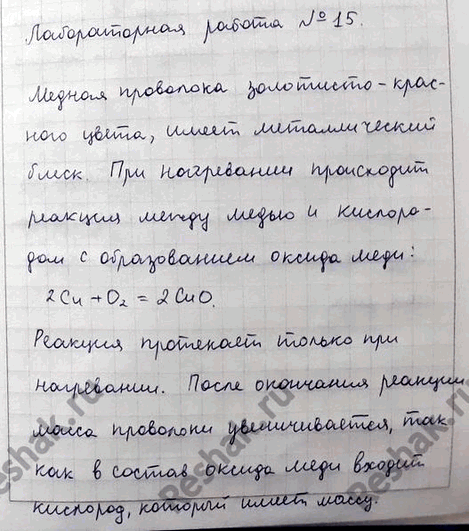 Лабораторная работа №15.
Медная проволока золотисто-крас-
ного цвета, имеет металлический
блеск. При нагревании происходит
реакция между медью и кислоро-
дом с образованием оксида меди:
2Cu + O₂ = 2CuO.
Реакция протекает только при
нагревании. После окончания реакции
масса проволоки увеличивается, так
как в состав оксида меди входит
кислород, который имеет массу.
Reshak.ru
Reshak.ru
Reshak.ru